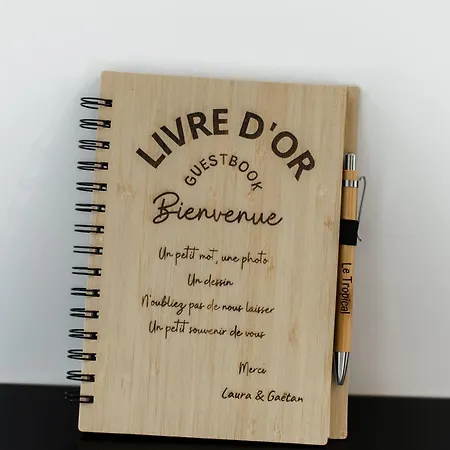 LIVRE D'OR
GUESTBOOK
Bienvenue
Un petit mot, une photo
Un dessin
N'oubliez pas de nous laisser
Un petit souvenir de vous
Merci
Laura & Gaëtan
Le Tropical